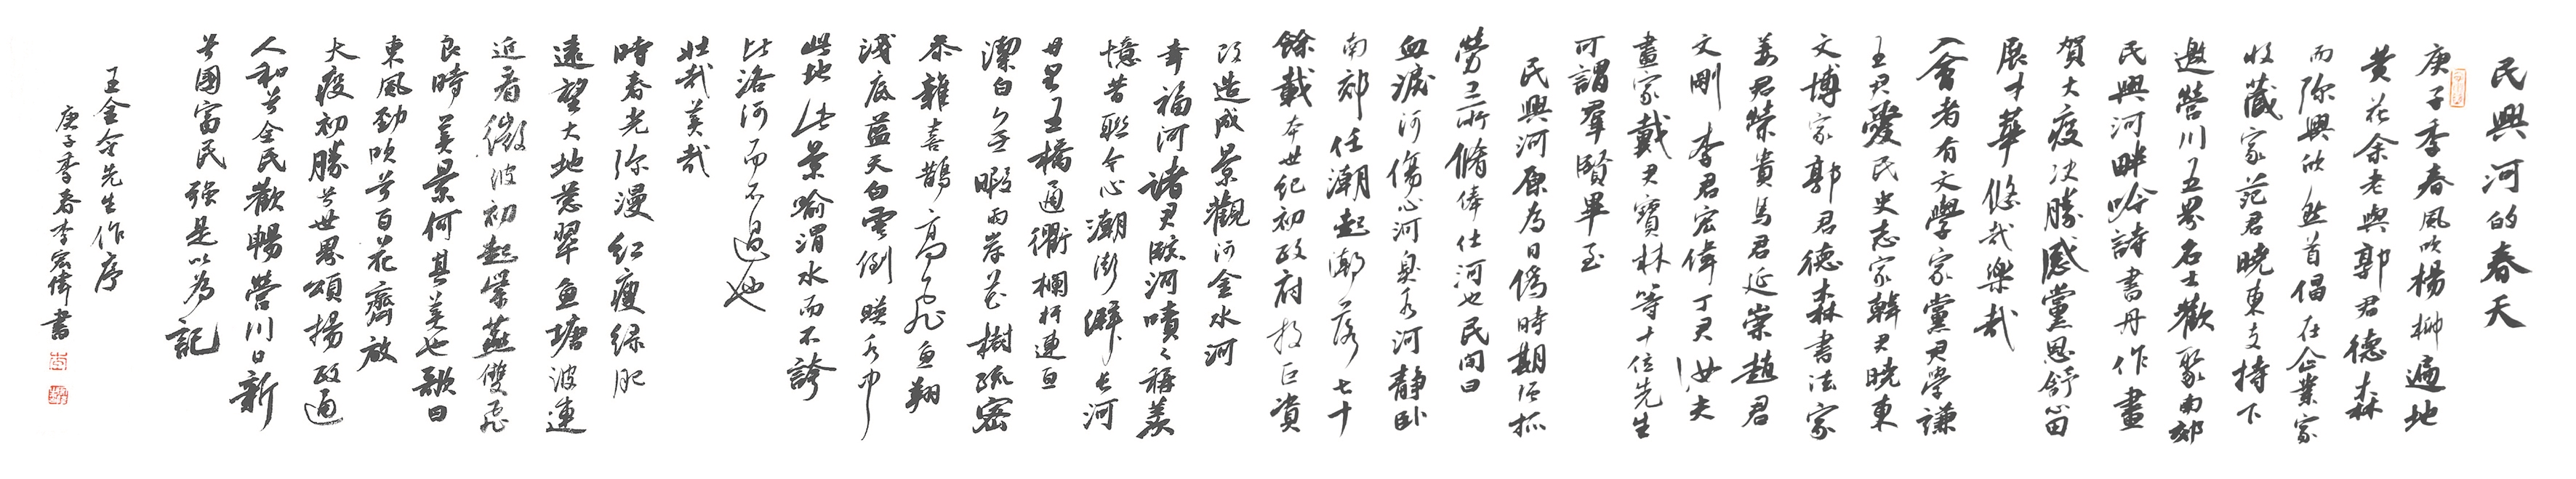 民興河的春天
庚子季春風吹楊柳遍地
黄花余老與郭君德森
而弥興欣然首倡在企業家
收藏家范君曉東支持下
邀營川五界名士歡聚南郊
民興河畔吟詩書丹作畫
賀大疫决勝感黨恩舒心田
展才華悠哉樂哉
入會者有文學家黨君學謙
王君愛民史志家韓君曉東
文博家郭君德森書法家
姜君榮貴馬君延崇趙君
文剛李君宏偉丁君汝夫
畫家戴君寳林等十位先生
可謂羣賢畢至
民興河原為日偽時期强抓
勞工所脩俸仕河也民間曰
血淚河傷心河臭水河静卧
南郊任潮起潮落七十
餘載本世紀初政府投巨資
改造成景觀河金水河
幸福河諸君臨河嘖々稱羨
憶昔聯今心潮澎湃長河
廿里五橋通衢欄杆連亘
潔白無暇兩岸花樹疏密
參雜喜鵲高飛魚翔
淺底藍天白雲倒映水中
此地此景喻渭水而不誇
比洛河而不過也
壮哉美哉
時春光弥漫紅瘦绿肥
遠望大地葱翠魚塘波連
近看微波初起紫燕雙飛
良時美景何其美也歌曰
東風勁吹兮百花齊放
大疫初勝兮世界頌揚政通
人和兮全民歡暢營川日新
兮國富民强是以為記
王金令先生作序
庚子季春李宏偉書